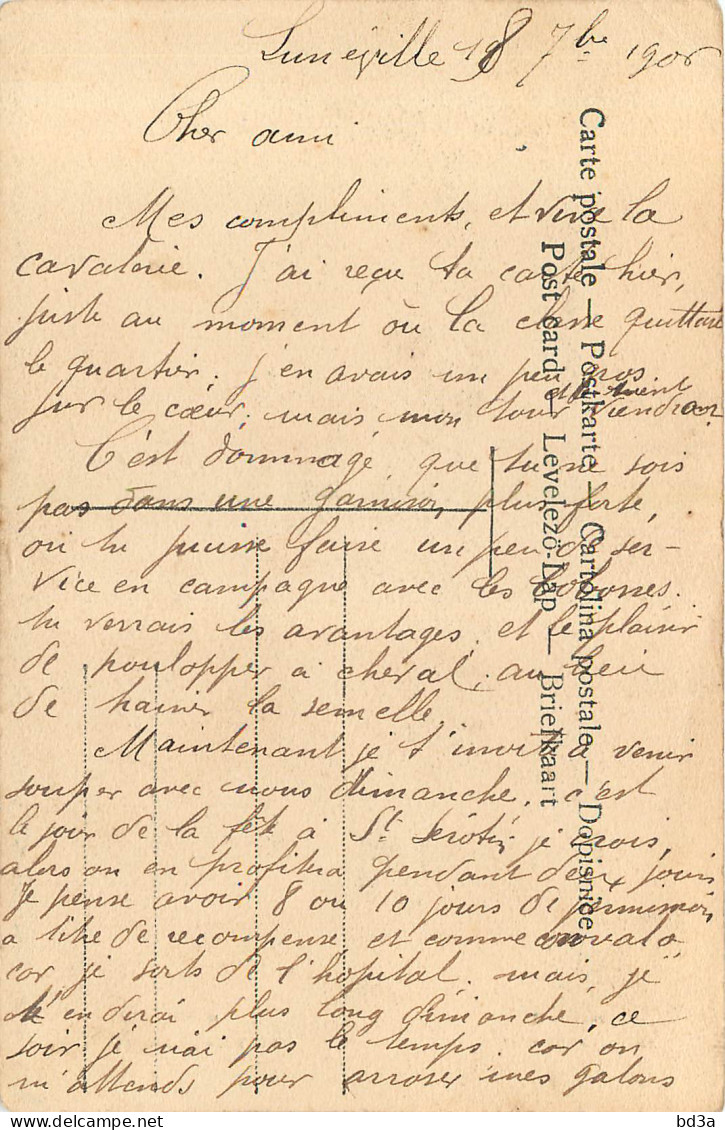 Lunéville 18 7bre 1906
Cher ami
Mes compliments, et vive la
cavalerie. J'ai reçu ta carte hier,
juste au moment où la classe quittait
le quartier. j'en avais un peu gros
sur le cœur, mais mon tour viendra.
C'est dommage, que tu ne sois
pas dans une garnison plus forte,
ou tu puisse faire un peu de ser-
vice en campagne avec les
tu verrais les avantages, et le plaisir
de poulopper a cheval. au lieu
de trainer la semelle.
Maintenant je t'invite a venir
souper avec nous dimanche, c'est
le jour de la fête à St Sérotin je crois,
alors on en profitra pendant deux jours
Je pense avoir 8 ou 10 jours de permission
a titre de recompense et comme
car je sorts de l'hopital. mais, je
t'en dirai plus long dimanche, ce
soir je n'ai pas le temps. car on
m'attends pour arroser mes galons
Carte postale — Postkarte — Cartolina postale — Dopisnice
Post card — Levelezö-Lap — Briefkaart